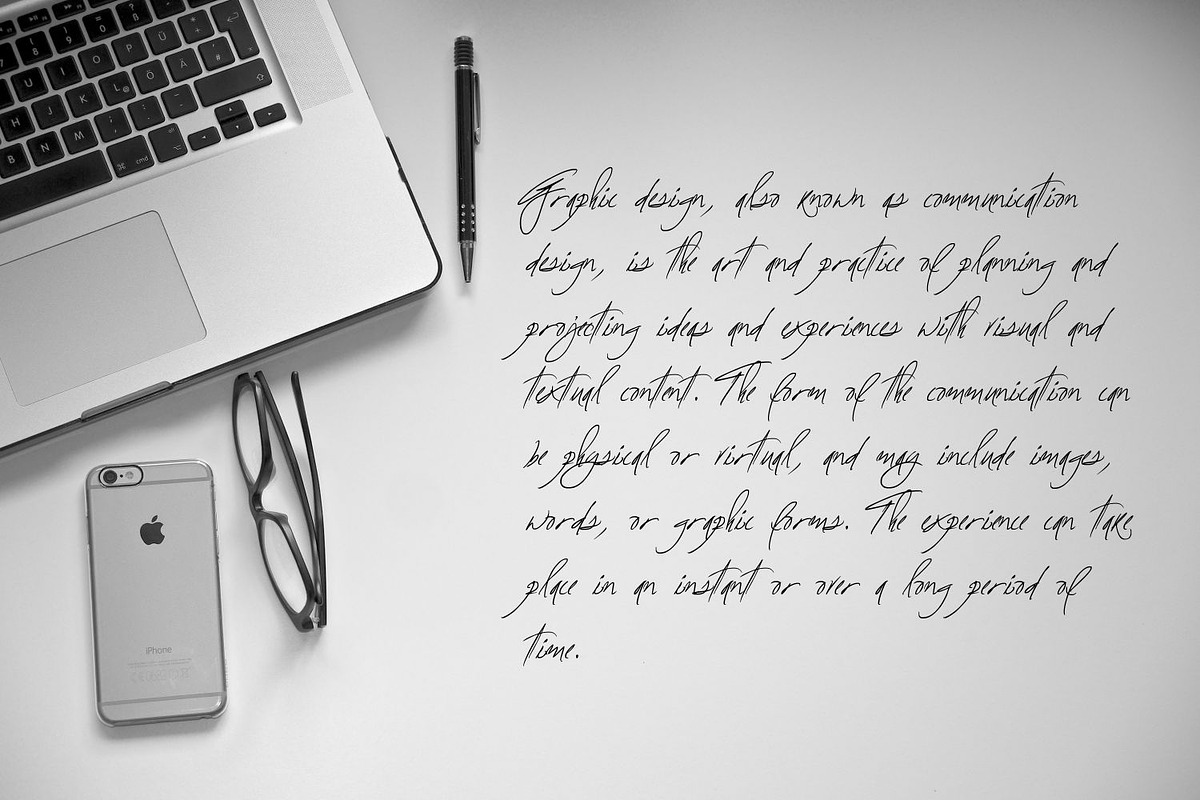 Graphic design, also known as communication
design, is the art and practice of planning and
projecting ideas and experiences with visual and
textual content. The form of the communication can
be physical or virtual, and may include images,
words, or graphic forms. The experience can take
place in an instant or over a long period of
time.
8 9 0 ß
U I O P Ü + *
H J K L @ Ö Ä #
B N M ; , : . _ -
⌘ cmd alt
iPhone